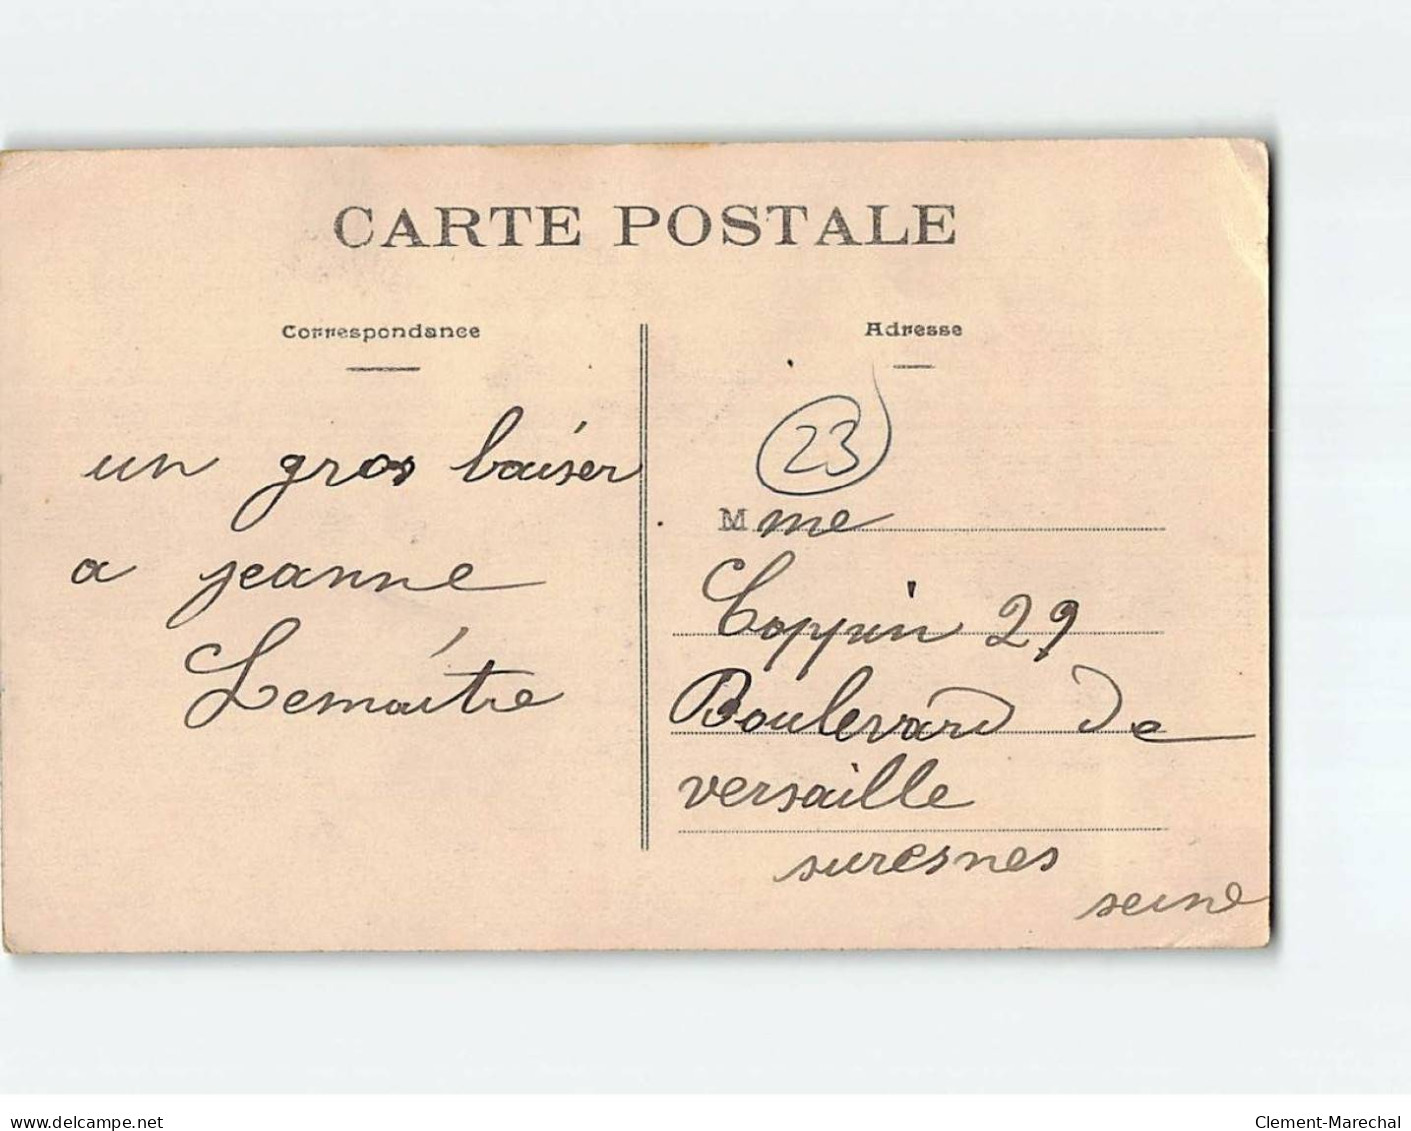 CARTE POSTALE
Correspondance
Adresse
un gros baiser
a jeanne
Lemaître
23
Mme
Coppin 29
Boulevard De
versaille
suresnes
seine
www.delcampe.net
Clement-Marechal